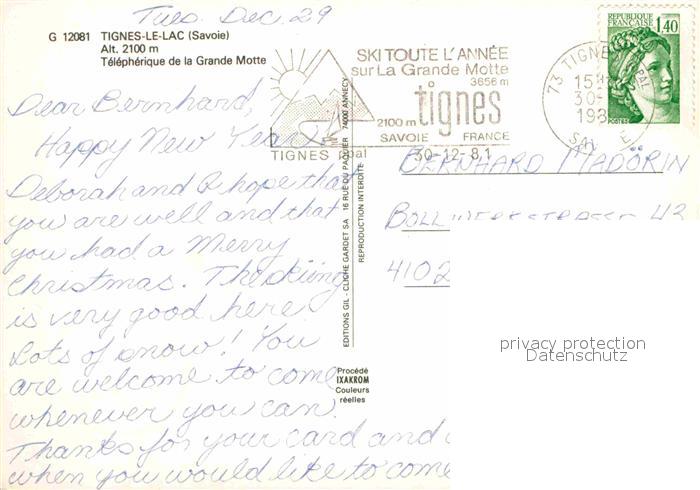 Tues. Dec. 29
G 12081 TIGNES-LE-LAC (Savoie)
Alt. 2100 m
Téléphérique de la Grande Motte
RÉPUBLIQUE FRANÇAISE
1,40
POSTES
SKI TOUTE L'ANNÉE
sur La Grande Motte
3656 m
tignes
2100 m
SAVOIE FRANCE
TIGNES pal
30-12-81
73 TIGNES
15H
30-
198
Dear Bernhard,
Happy New Year!
Deborah and I hope that
you are well and that
you had a Merry
Christmas. The skiing
is very good here
Lots of snow! You
are welcome to come
whenever you can.
Thanks for your card and
when you would like to come
EDITIONS GIL - CLICHÉ GARDET SA 16 RUE DU PAQUIER 74000 ANNECY
REPRODUCTION INTERDITE
Procédé
IXAKROM
Couleurs
réelles
BERNHARD MADÖRIN
42
4102
privacy protection
Datenschutz